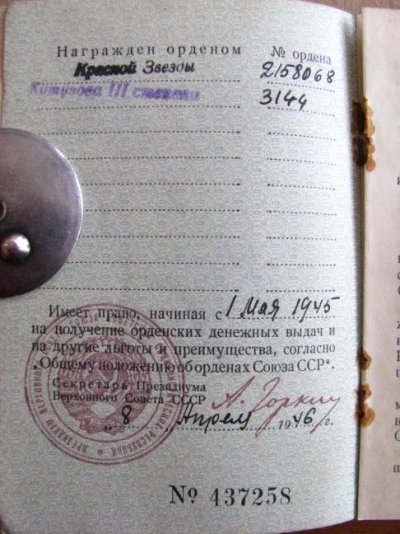 Награжден орденом № ордена
Красной Звезды 2158068
Кутузова III степени 3144
Имеет право, начиная с 1 Мая 1945
на получение орденских денежных выдач и
на другие льготы и преимущества, согласно
„Общему положению об орденах Союза ССР“.
Секретарь Президиума
Верховного Совета СССР А. Горкин
„8 Апреля 1946 г.
№ 437258